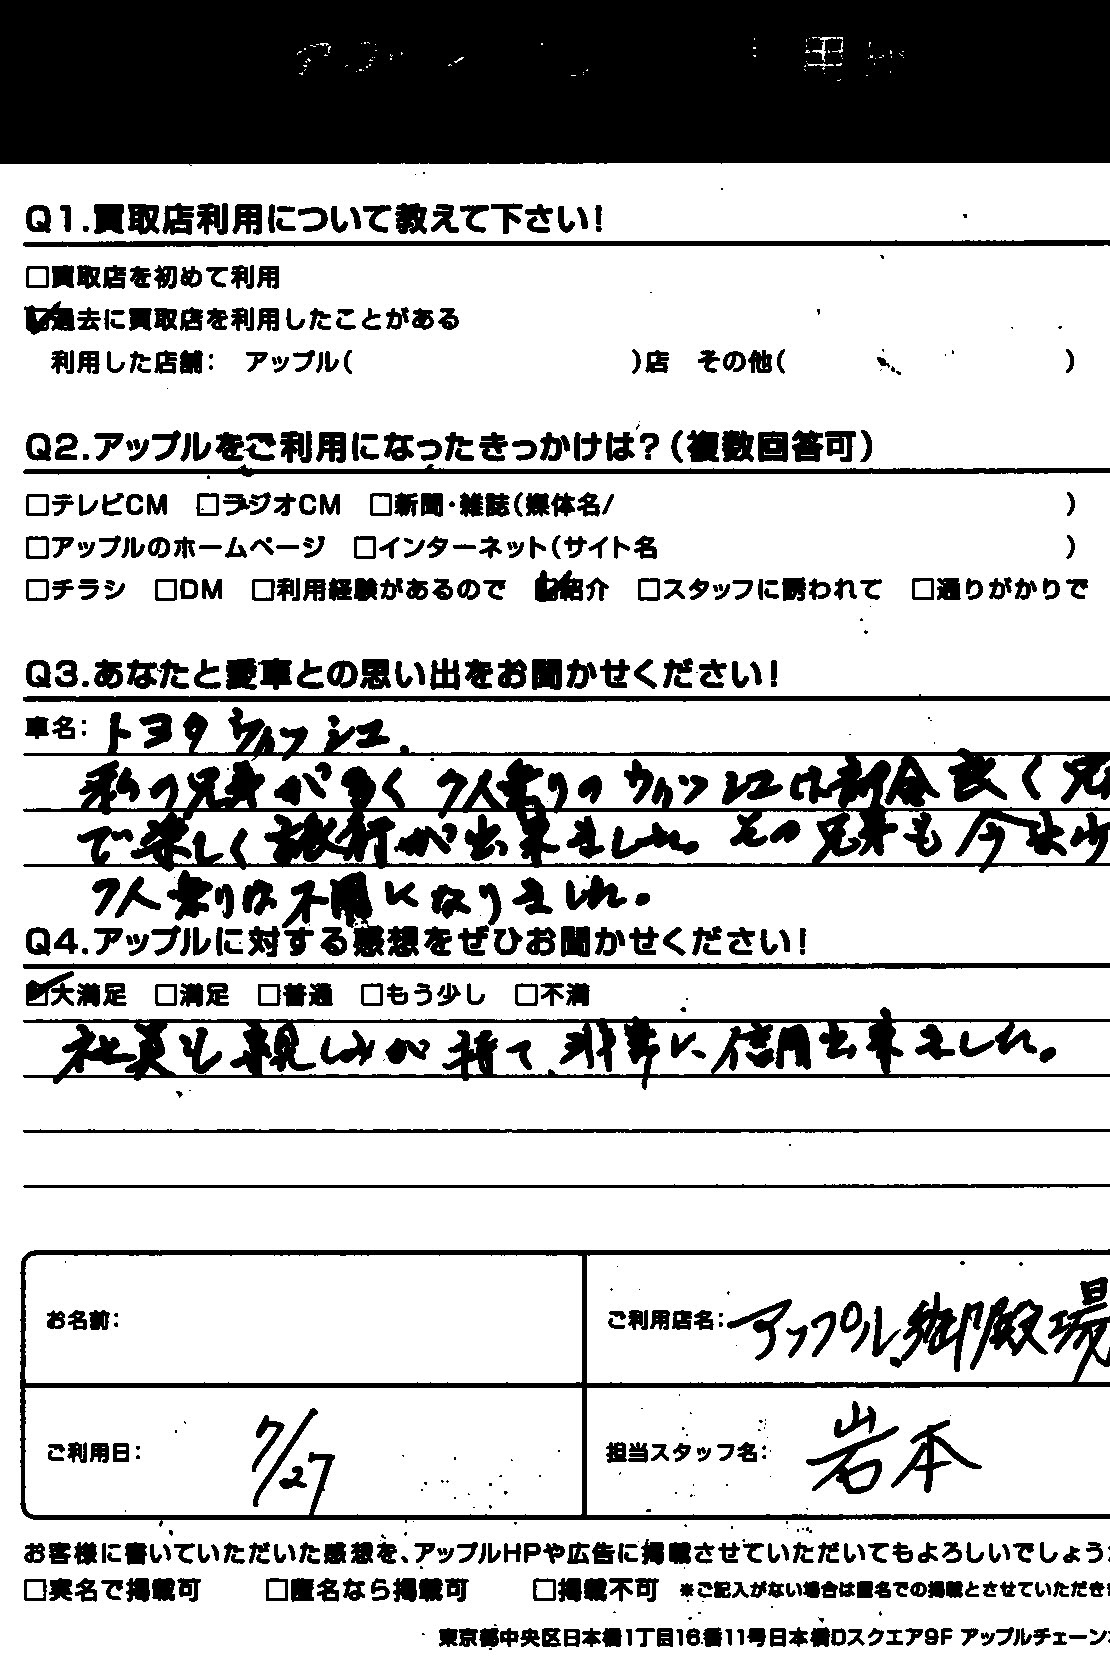 Q1.買取店利用について教えて下さい!
□買取店を初めて利用
☑過去に買取店を利用したことがある
利用した店舗: アップル( )店 その他( )
Q2.アップルをご利用になったきっかけは?(複数回答可)
□テレビCM □ラジオCM □新聞・雑誌(媒体名/ )
□アップルのホームページ □インターネット(サイト名 )
□チラシ □DM □利用経験があるので ☑紹介 □スタッフに誘われて □通りがかりで
Q3.あなたと愛車との思い出をお聞かせください!
車名: トヨタ ウィッシュ.
私の兄弟が多く 7人乗りの ウィッシュは都合良く 兄
で楽しく旅行が出来ました。その兄弟も 今は少
7人乗りは不用になりました。
Q4.アップルに対する感想をぜひお聞かせください!
☑大満足 □満足 □普通 □もう少し □不満
社員も親しみが持て、非常に信用出来ました。
お名前:
ご利用店名: アップル御殿場
ご利用日: 7/27
担当スタッフ名: 岩本
お客様に書いていただいた感想を、アップルHPや広告に掲載させていただいてもよろしいでしょう
□実名で掲載可 □匿名なら掲載可 □掲載不可 ※ご記入がない場合は匿名での掲載とさせていただき
東京都中央区日本橋1丁目16番11号日本橋Dスクエア9F アップルチェーン